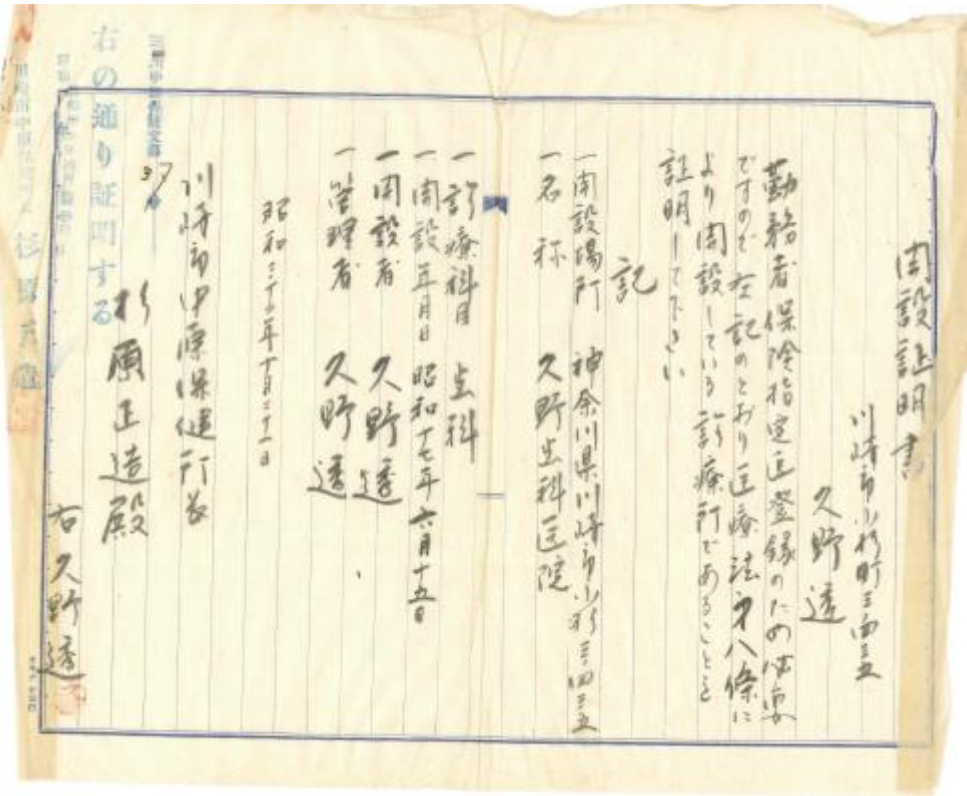 開設証明書
川崎市小杉町三ノ四三五
久野透
勤務者保険指定医登録のため必要
ですので左記のとおり医療法第八條に
より開設している診療所であることを
証明して下さい
記
一開設場所 神奈川県川崎市小杉三ノ四三五
一名称 久野歯科医院
一診療科目 歯科
一開設年月日 昭和十七年六月十五日
一開設者 久野透
一管理者 久野透
昭和三十二年十月二十一日
川崎市中原保健所長
杉原正造殿
右久野透
右の通り証明する